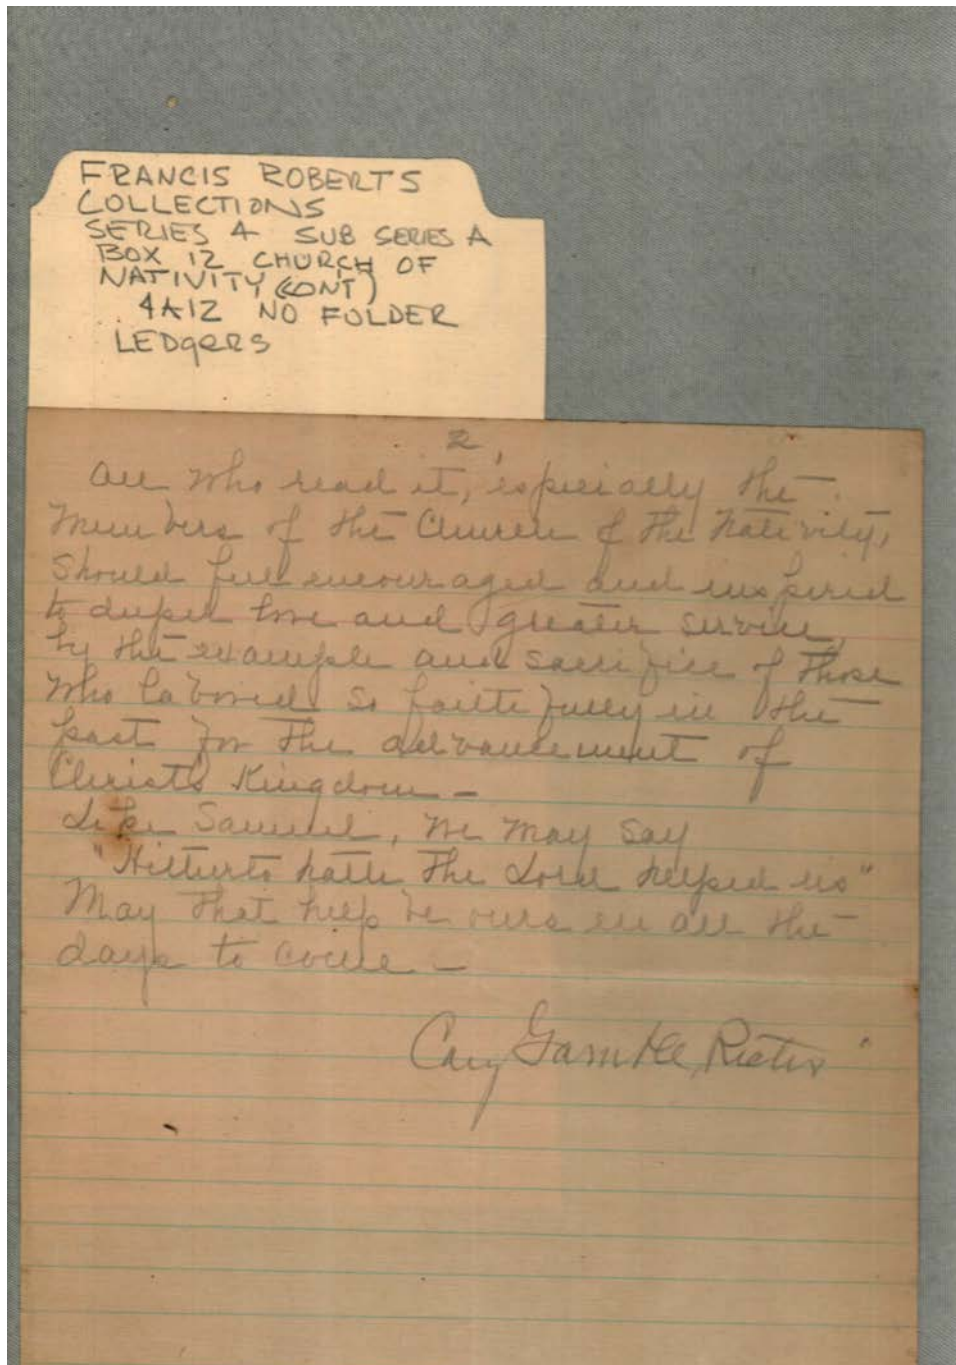 FRANCIS ROBERTS
COLLECTIONS
SERIES 4 SUB SERIES A
BOX 12 CHURCH OF
NATIVITY (CONT)
4A12 NO FOLDER
LEDgERS
2,
All who read it, especially the
Members of the Church of the Nativity,
Should feel encouraged and inspired
to deeper love and greater service,
by the example and sacrifice of those
who labored so faithfully in the
past for the advancement of
Christ's Kingdom -
Like Samuel, we may say
"Hitherto hath the Lord helped us"
May that help be ours in all the
days to come -
Cary Gamble, Rector "